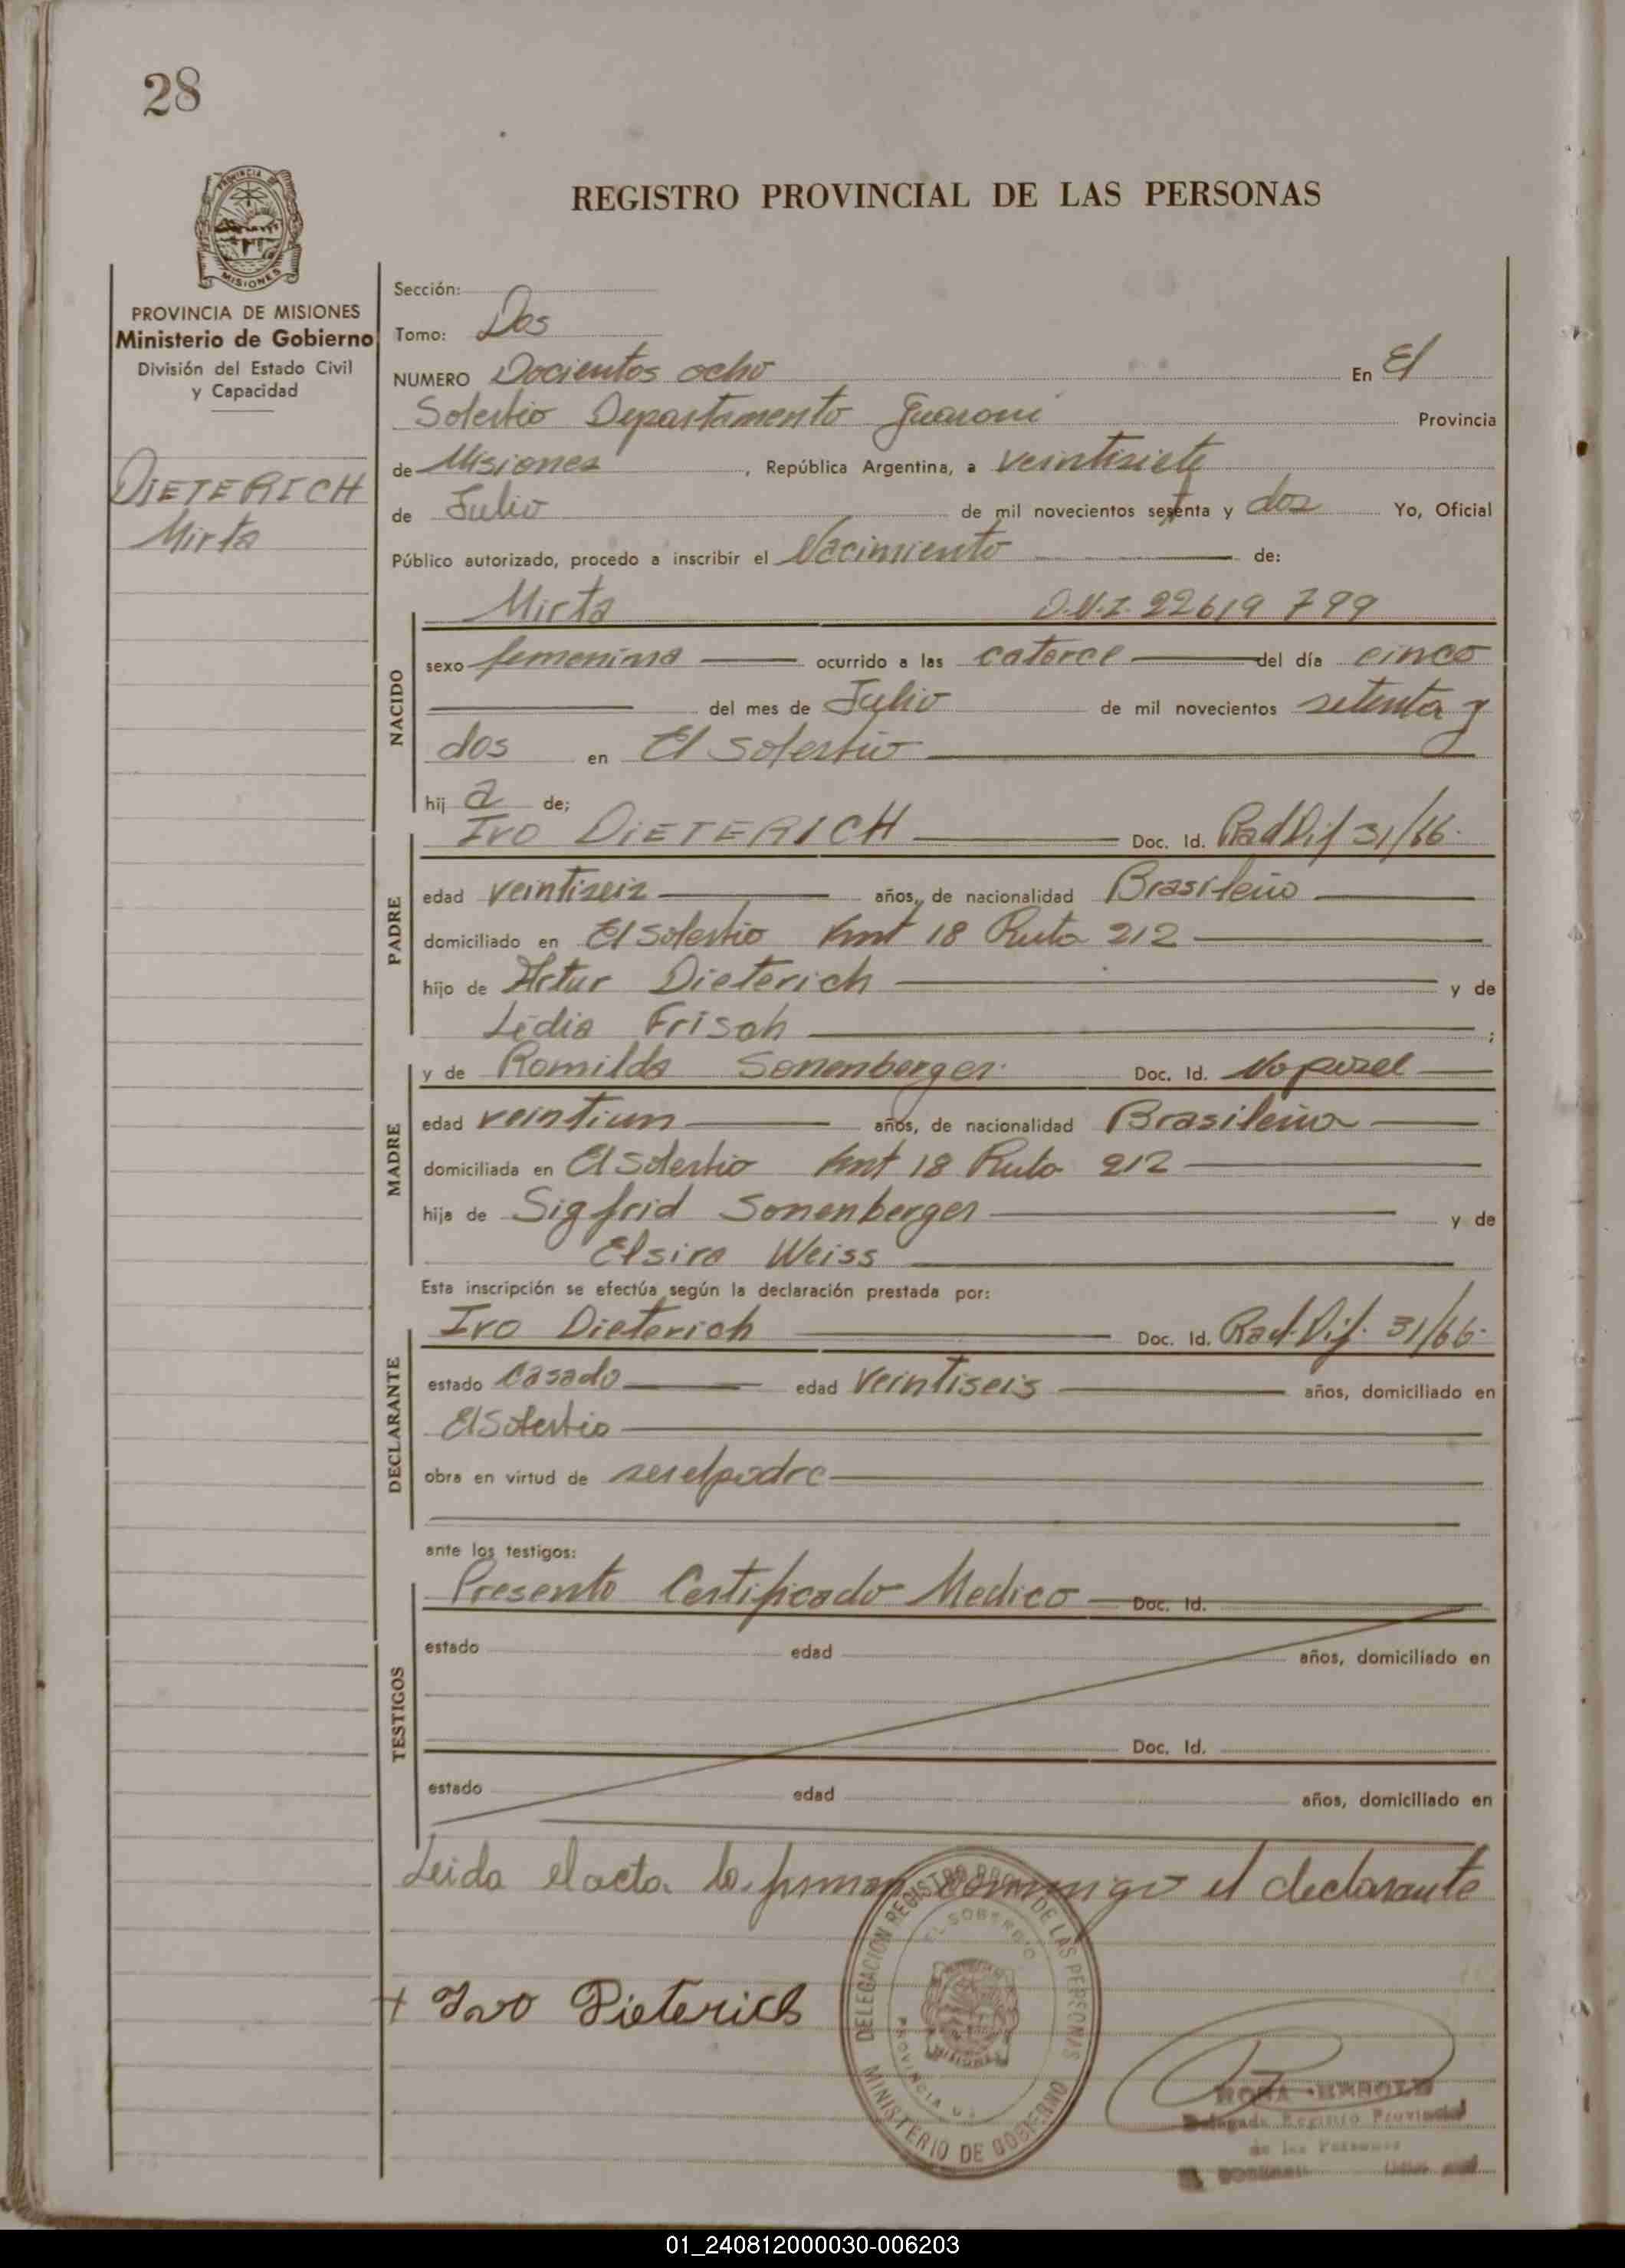 28
REGISTRO PROVINCIAL DE LAS PERSONAS
PROVINCIA DE MISIONES
MISIONES
PROVINCIA DE MISIONES
Ministerio de Gobierno
División del Estado Civil
y Capacidad
DIETERICH
Mirta
Sección:
Tomo: Dos
NUMERO Docientos ocho En El
Soberbio Departamento Guaraní Provincia
de Misiones, República Argentina, a veintisiete
de Julio de mil novecientos setenta y dos Yo, Oficial
Público autorizado, procedo a inscribir el Nacimiento de:
Mirta D.N.I. 22619799
NACIDO
sexo femenino ocurrido a las catorce del día cinco
del mes de Julio de mil novecientos setenta y
dos en El Soberbio
hij a de;
PADRE
Ivo DIETERICH Doc. Id. Rad Dif 31/66.
edad veintiseis años, de nacionalidad Brasileño
domiciliado en El Soberbio Kmt 18 Ruta 212
hijo de Artur Dieterich y de
Lidia Frisch;
MADRE
y de Romilda Sonenberger Doc. Id. No posee
edad veintiun años, de nacionalidad Brasileña
domiciliada en El Soberbio Kmt 18 Ruta 212
hija de Sigfrid Sonenberger y de
Elsira Weiss
Esta inscripción se efectúa según la declaración prestada por:
DECLARANTE
Ivo Dieterich Doc. Id. Rad. Dif. 31/66.
estado casado edad veintiseis años, domiciliado en
El Soberbio
obra en virtud de ser el padre
ante los testigos:
TESTIGOS
Presento Certificado Medico Doc. Id.
estado edad años, domiciliado en
Doc. Id.
estado edad años, domiciliado en
Leida el acta la firman conmigo el declarante
+ Ivo Dieterich
DELEGACION REGISTRO PROV. DE LAS PERSONAS
EL SOBERBIO
PROVINCIA DE
MISIONES
MINISTERIO DE GOBIERNO
Delegada Registro Provincial
de las Personas
01_240812000030-006203